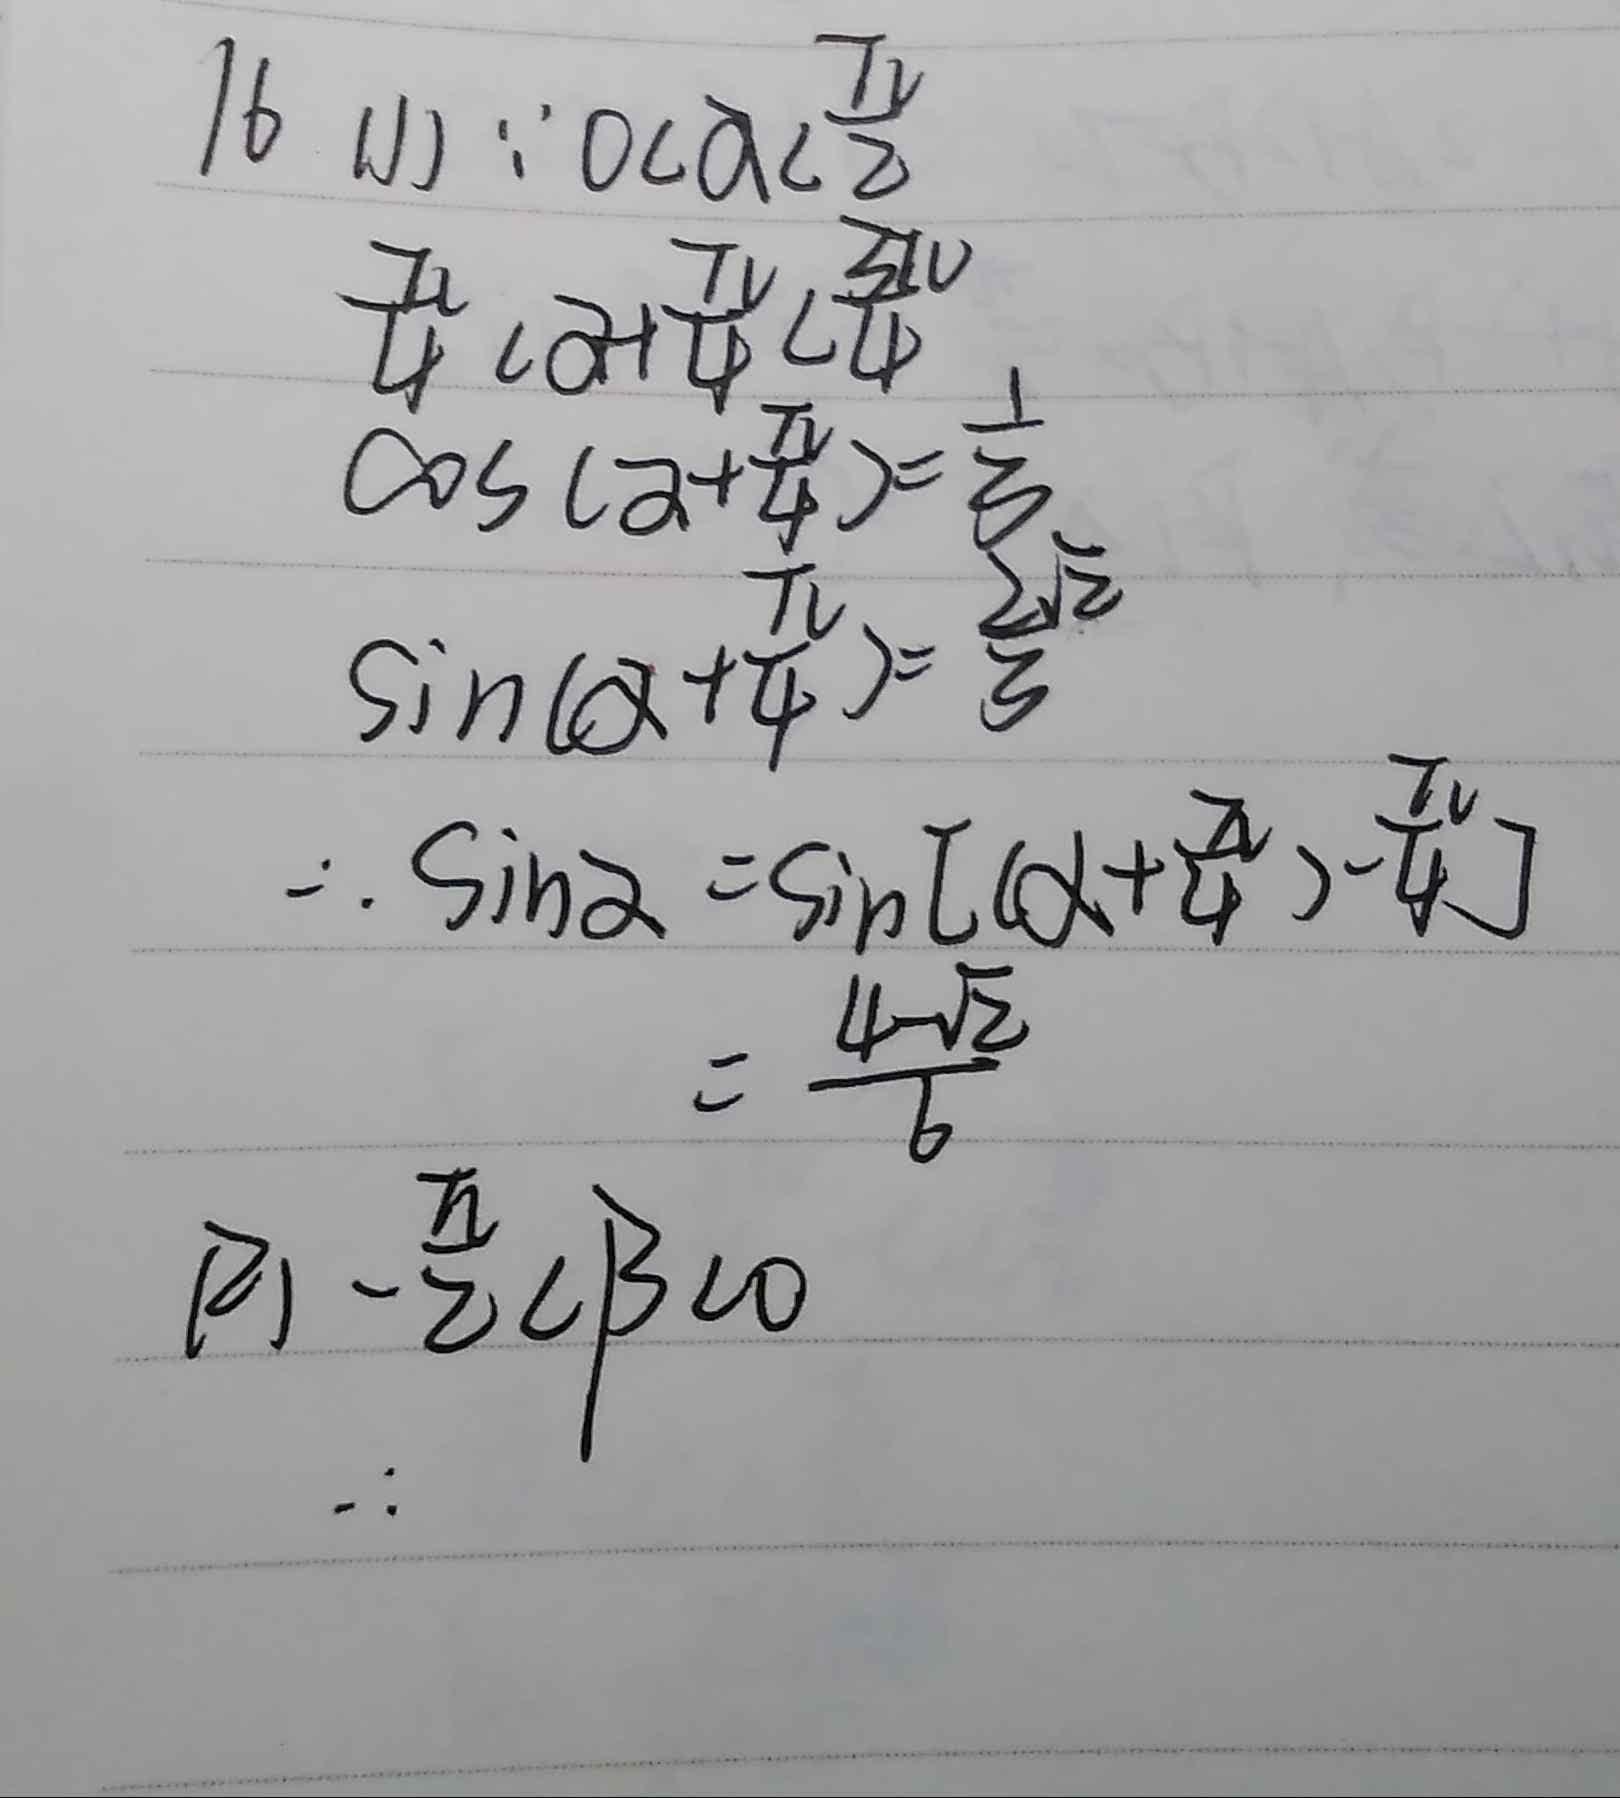 16 (1) ∵ 0<α<π/2
π/4 <α+π/4 <3π/4
cos(α+π/4)=1/3
sin(α+π/4)=2√2/3
∴ sinα =sin[(α+π/4)-π/4]
= 4-√2/6
(2) -π/2<β<0
∴